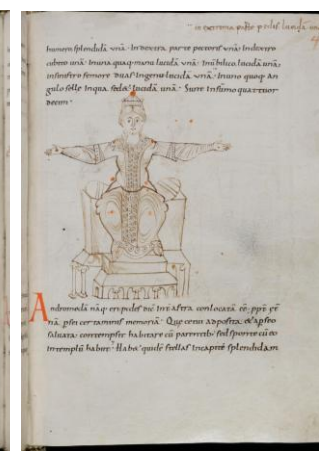 in extrema parte pedis lucidā
humerū splendidā unā· In dextra parte pectoris unā· In dextro
cubito unā· In una quaq; manu lucidā unā· In ūbilico lucidā unā·
in sinistro femore duas· In genu lucidā unā· In uno quoq; an
gulo selle in qua sedet lucidā unā· Sunt in sumo quattuor
decim·
Andromedā
in astra conlocatā
certaminis memoriā· Que cetui adposita et a pseo
saluata· contempsit habitare cū parentib; sed sponte cū eo
Habet quidē stellas in capite splendidam